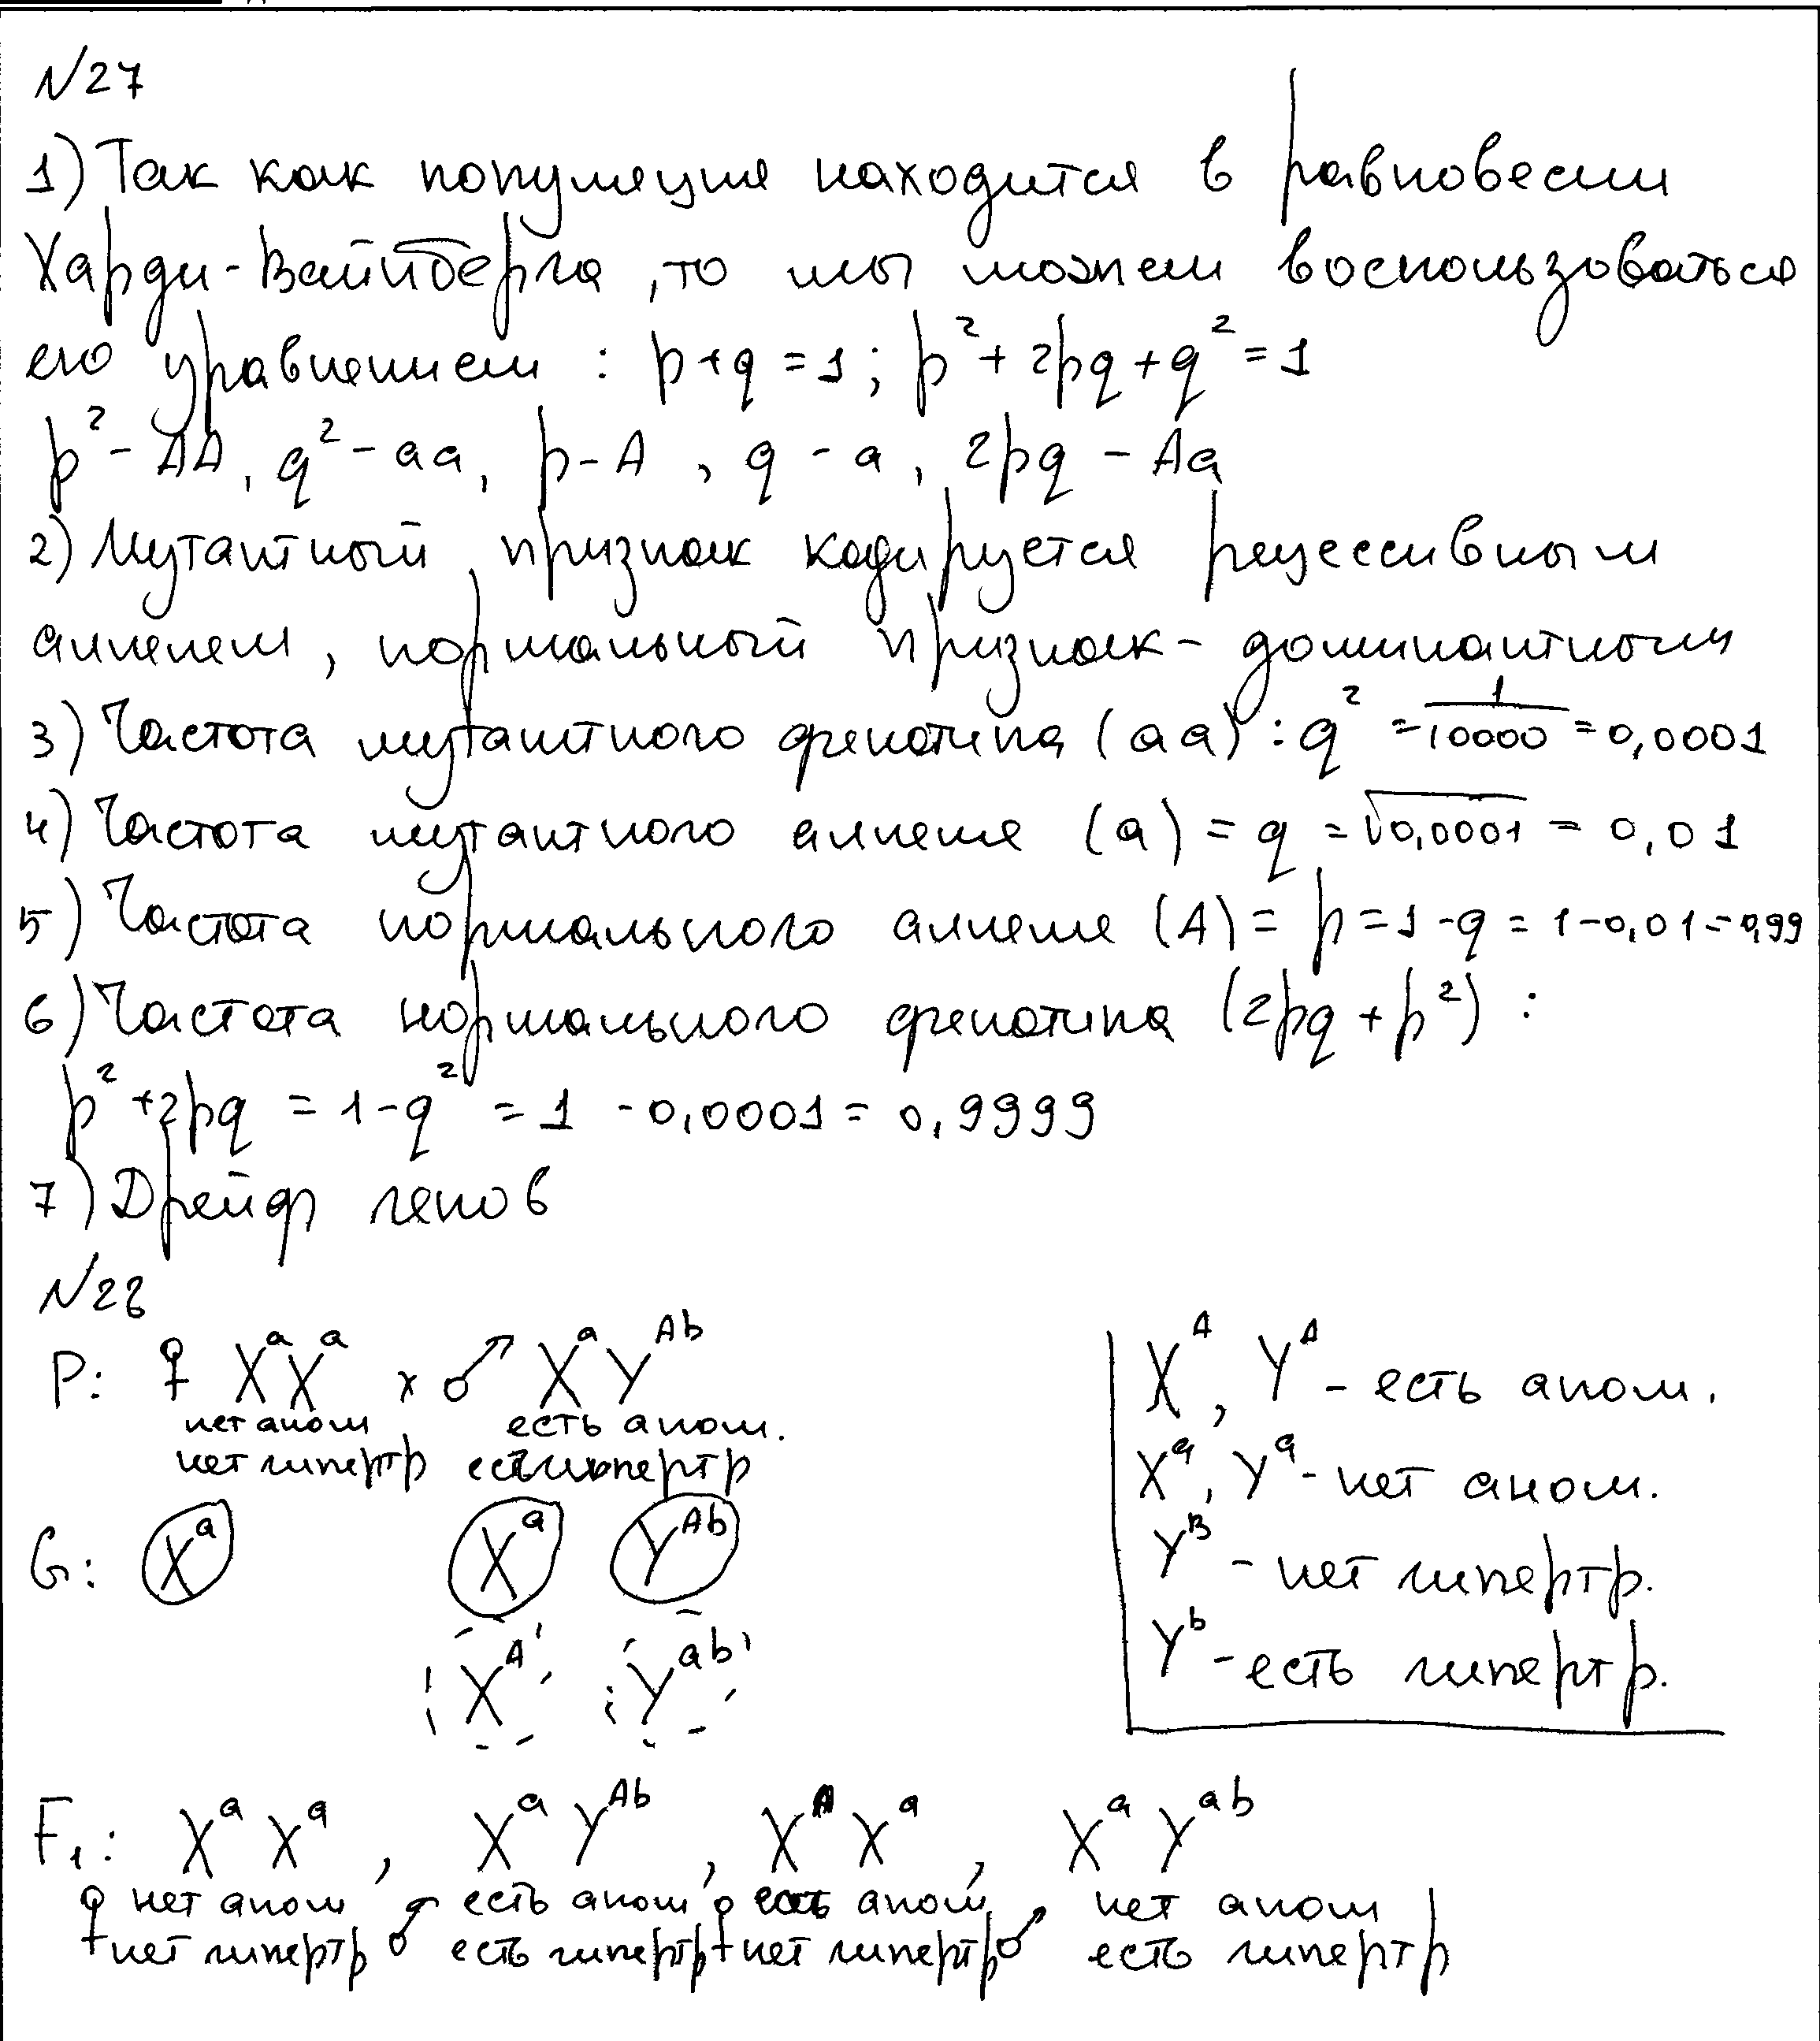 №27
1) Так как популяция находится в равновесии
Харди-Вайнберга, то мы можем воспользоваться
его уравнением : p+q=1; p²+2pq+q²=1
p² - AA, q² - aa, p - A, q - a, 2pq - Aa
2) Мутантный признак кодируется рецессивным
аллелем, нормальный признак - доминантным
3) Частота мутантного фенотипа (aa) : q² = 1/10000 = 0,0001
4) Частота мутантного аллеля (a) = q = √0,0001 = 0,01
5) Частота нормального аллеля (A) = p = 1-q = 1-0,01=0,99
6) Частота нормального фенотипа (2pq + p²) :
p² + 2pq = 1-q² = 1 - 0,0001 = 0,9999
7) Дрейф генов
№28
P: ♀ XᵃXᵃ x ♂ XᵃYᴬᵇ
нет аном есть аном.
нет гипертр есть гипертр
G: Xᵃ Xᵃ Yᴬᵇ
Xᴬ Yᵃᵇ
Xᴬ, Yᴬ - есть аном.
Xᵃ, Yᵃ - нет аном.
Yᴮ - нет гипертр.
Yᵇ - есть гипертр.
F₁: XᵃXᵃ, XᵃYᴬᵇ, XᴬXᵃ, XᵃYᵃᵇ
♀ нет аном ♂ есть аном, ♀ есть аном, ♂ нет аном
нет гипертр есть гипертр нет гипертр есть гипертр